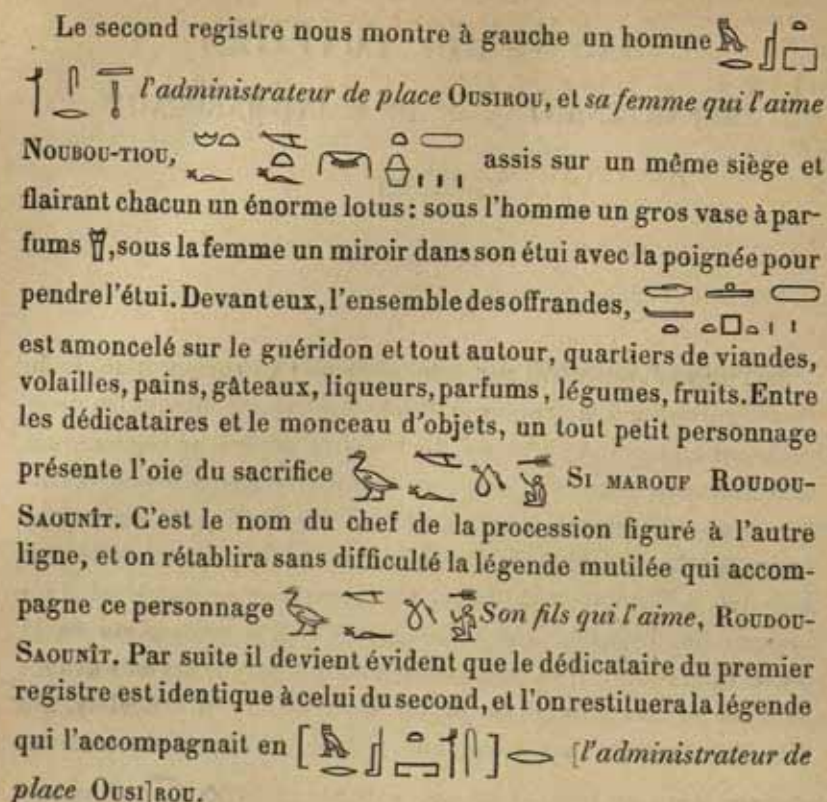 Le second registre nous montre à gauche un homme
l'administrateur de place OUSIROU, et sa femme qui l'aime
NOUBOU-TIOU, assis sur un même siège et
flairant chacun un énorme lotus: sous l'homme un gros vase à par-
fums , sous la femme un miroir dans son étui avec la poignée pour
pendre l'étui. Devant eux, l'ensemble des offrandes,
est amoncelé sur le guéridon et tout autour, quartiers de viandes,
volailles, pains, gâteaux, liqueurs, parfums, légumes, fruits. Entre
les dédicataires et le monceau d'objets, un tout petit personnage
présente l'oie du sacrifice SI MAROUF ROUDOU-
SAOUNÎT. C'est le nom du chef de la procession figuré à l'autre
ligne, et on rétablira sans difficulté la légende mutilée qui accom-
pagne ce personnage Son fils qui l'aime, ROUDOU-
SAOUNÎT. Par suite il devient évident que le dédicataire du premier
registre est identique à celui du second, et l'on restituera la légende
qui l'accompagnait en [ ] [l'administrateur de
place OUSI]ROU.